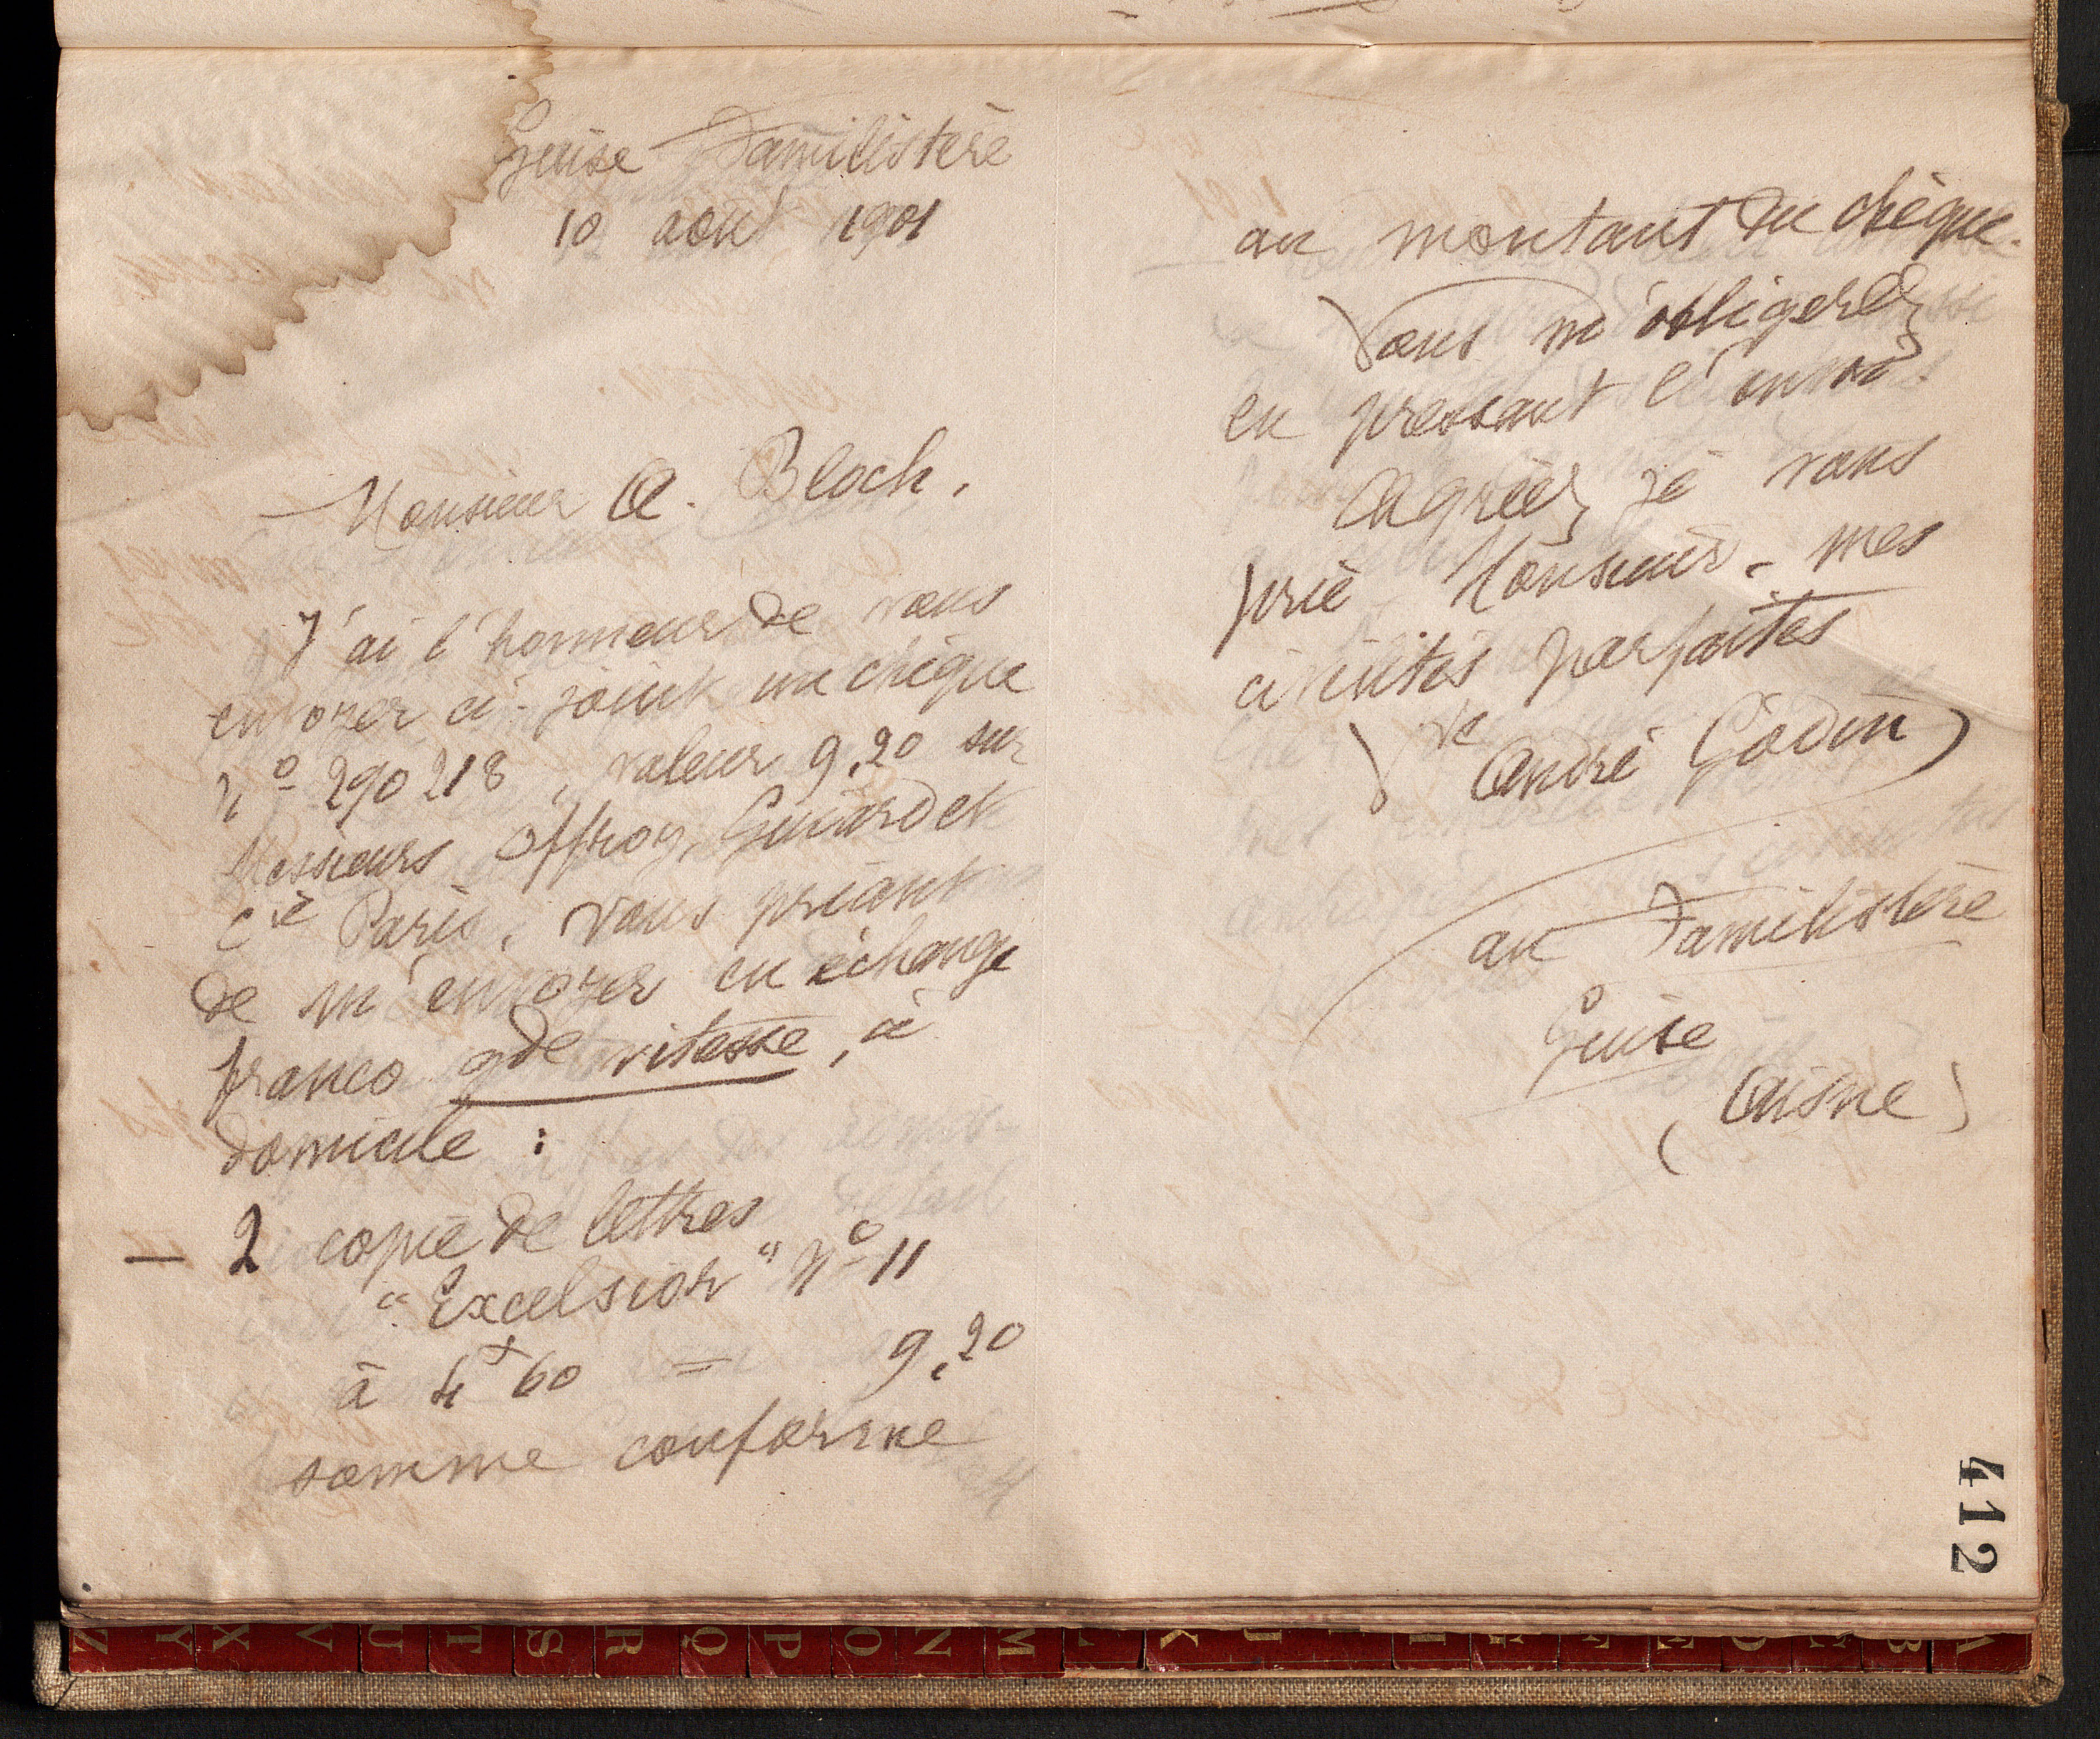 Guise Familistère
10 août 1901
Monsieur A. Bloch,
J'ai l'honneur de vous
envoyer ci-joint un chèque
No 290218, valeur 9,20 sur
Messieurs Offroy, Guiard et
Cie Paris, vous priant
de m'envoyer en échange
franco gde vitesse, à
domicile :
— 2 copie de lettres
"Excelsior" No 11
à 4f60 = 9,20
somme conforme
au montant du chèque.
Vous m'obligerez
en pressant l'envoi.
Agréez, je vous
prie Monsieur, mes
civilités parfaites
Vve André Godin
au Familistère
Guise
(Aisne)
412
Z Y X V U T S R Q P O N M L K J I H G F E D C B A